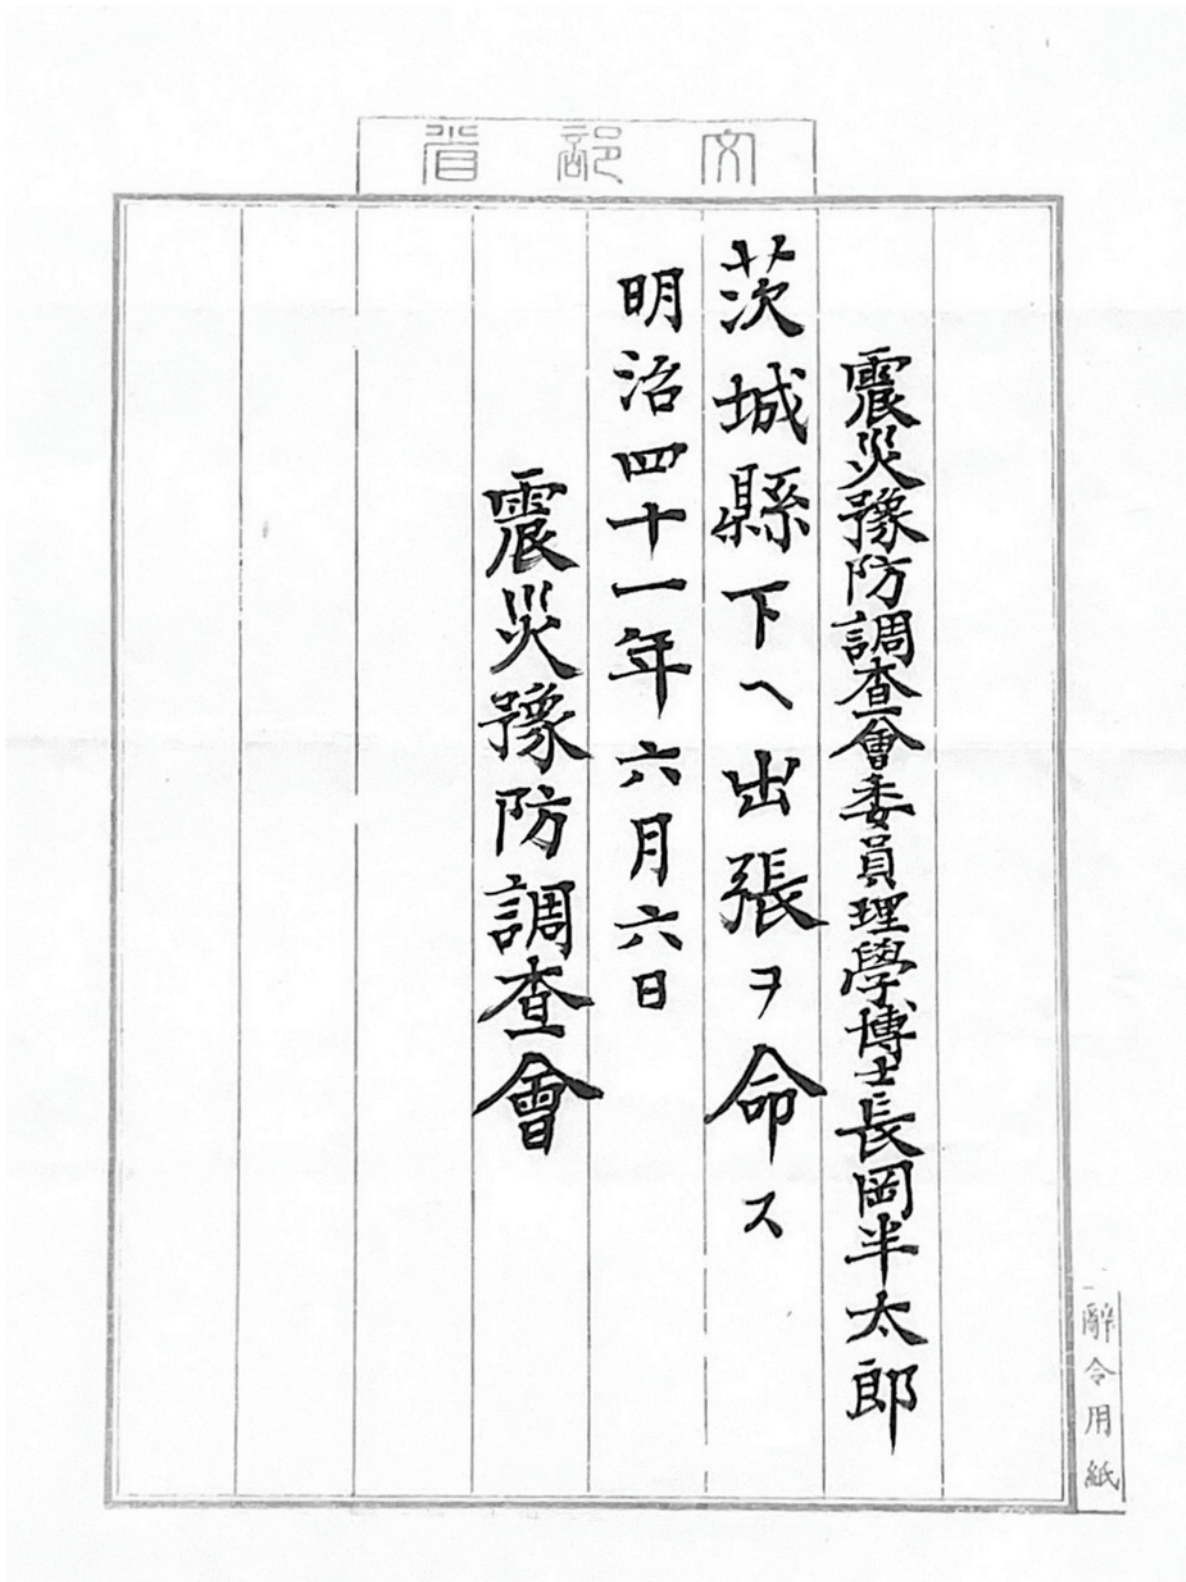 文部省
震災豫防調查會委員理學博士長岡半太郎
茨城縣下ヘ出張ヲ命ス
明治四十一年六月六日
震災豫防調查會
辭令用紙